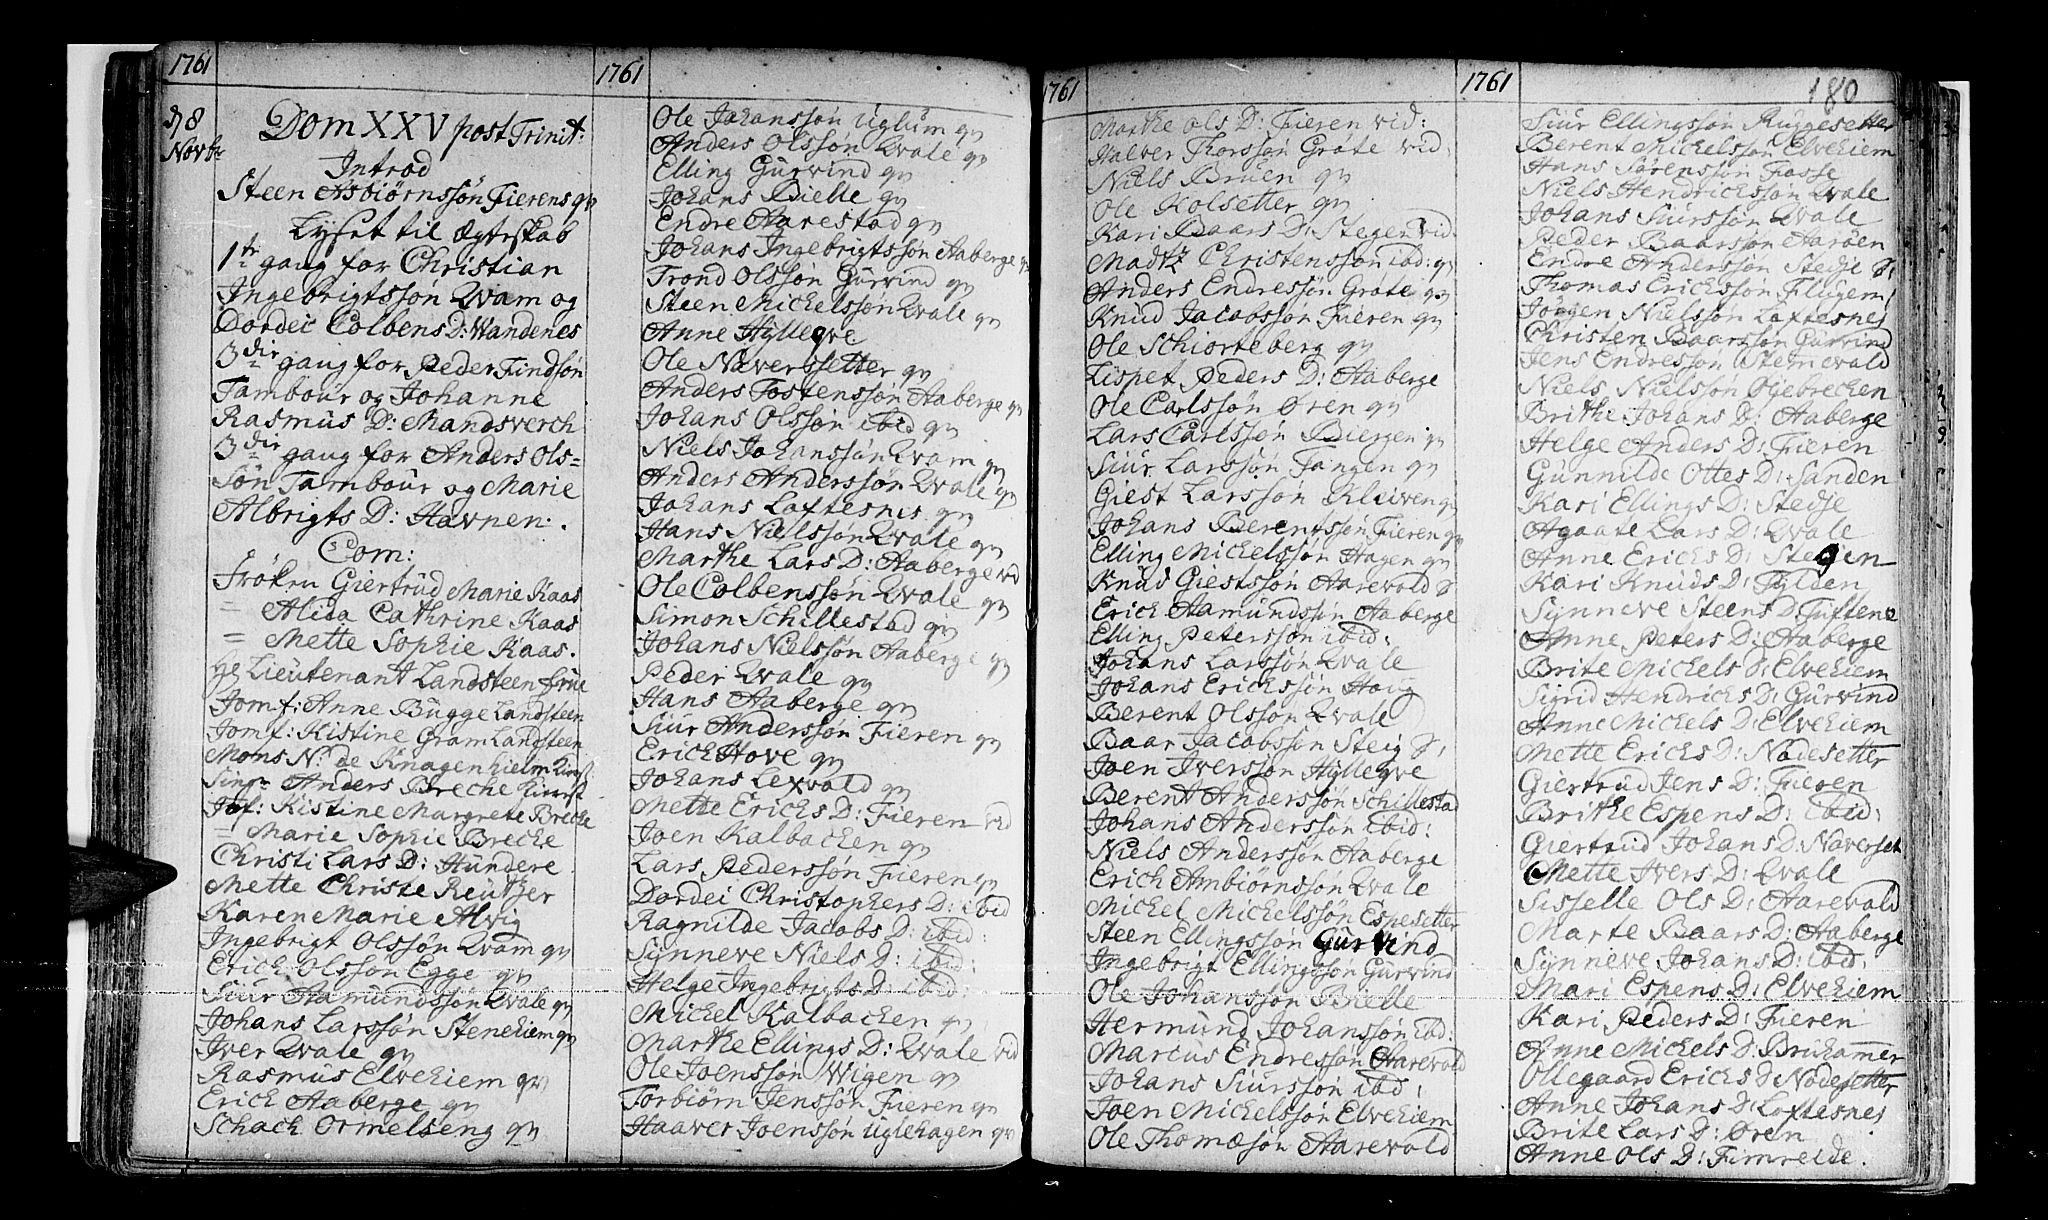 1761
d 8
Novbr
Dom XXV post Trinit:
Introd
Steen Asbiörnssön Fierens qv
Lyset til Ægteskab
1te gang for Christian
Ingebrigtssön Qvam og
Dordei Colbens D: Wandenes
3die gang for Peder Findsön
Tambour og Johanne
Rasmus D: Mandsverch
3die gang for Anders Ols=
Sön Tambour og Marie
Albrigts D: Havnen.
Com:
Fröken Giertrud Marie Kaas
= Alida Cathrine Kaas
= Mette Sophie Kaas.
Hr Lieutenant Landsteen Frue
Jomf: Anne Bugge Landsteen
Jomf: Kistine Gram Landsteen
Mons N. de Knagenhielm
Anders Breche
Jof: Kistine Margrete Breche
= Marie Sophie Breche
Christi Lars D: Hundere
Mette Christe Reutzer
Karen Marie Alvig
Ingebrigt Olssön Qvam qv
Erich Olssön Egge qv
Siur Aamundssön Qvale qv
Johans Larssön Stenehiem qv
Iver Qvale qv
Rasmus Elvehiem qv
Erich Aaberge qv
Schack Ormelseng qv
1761
Ole Johanssön Uglum qv
Anders Olssön Qvale qv
Elling Gurvind qv
Johans Bielle qv
Endre Aarestad qv
Johans Ingebrigtssön Aaberge qv
Trond Olssön Gurvind qv
Steen Mickelssön Qvale qv
Anne Hylleqve
Ole Næverssetter qv
Anders Tostenssön Aaberge qv
Johans Olssön ibid qv
Niels Johanssön Qvam qv
Anders Anderssön Qvale qv
Johans Loftesnes qv
Hans Nielssön Qvale qv
Marthe Lars D: Aaberge vid
Ole Colbenssön Qvale qv
Simon Schillestad qv
Johans Nielssön Aaberge qv
Peder Qvale qv
Hans Aaberge qv
Siur Anderssön Fieren qv
Erich Hove qv
Johans Lexvold qv
Mette Erichs D: Fieren vid
Joen Kalbachen qv
Lars Pederssön Fieren qv
Dordei Christophers D: ibid
Ragnilde Jacobs D: ibid:
Synneve Niels D: ibid:
Helge Ingebrigts D: ibid:
Mickel Kalbachen qv
Marthe Ellings D: Qvale vid
Ole Joenssön Wigen qv
Torbiörn Jenssön Fieren qv
Haaver Joenssön Uglehagen qv
1761
Marthe Ols D: Fieren vid:
Halver Thorssön Grote vid
Niels Bruen qv
Ole Kolsetter qv
Kari Baars D: Stegen vid
Madtz Christenssön ibid: qv
Anders Endressön Grote qv
Knud Jacobssön Fieren qv
Ole Schiorteberg qv
Lispet Peders D: Aaberge
Ole Carlssön Ören qv
Lars Carlssön Biergen qv
Siur Larssön Tangen qv
Giest Larssön Kleiven qv
Johans Berentssön Fieren qv
Elling Mickelssön Hagen qv
Knud Giestssön Aarevold S
Erich Aamundssön Aaberge
Elling Peterssön ibid:
Johans Larssön Qvale
Johans Erichssön Haug
Berent Olssön Qvale
Baar Jacobssön Steig S:
Joen Iverssön Hylleqve
Berent Anderssön Schillestad
Johans Anderssön ibid:
Niels Anderssön Aaberge
Erich Arnbiörnssön Qvale
Mickel Mickelssön Espesetter
Steen Ellingssön Gurvind
Ingebrigt Ellingssön Gurvind
Ole Johanssön Bielle
Hermund Johanssön ibd:
Marcus Endressön Aarevold
Johans Siurssön ibid:
Joen Mickelssön Elvehiem
Ole Thomæsön Aarevold
1761
180
Siur Ellingssön Ruggesetter
Berent Mickelssön Elvehiem
Hans Sörenssön Fosse
Niels Hendrichssön Qvale
Johans Siurssön Qvale
Peder Baarssön Aaröen
Endre Anderssön Stedje S:
Thomas Erichssön Flugem
Jörgen Nielssön Loftesnes
Christen Baarssön Gurvind
Jens Endressön Stemevold
Niels Nielssön Ojebrechen
Brithe Johans D: Aaberge
Helge Anders D: Fieren
Gunnilde Ottes D: Sanden
Kari Ellings D: Stedje
Agaate Lars D: Qvale
Anne Erichs D: Stegen
Kari Knuds D: Fylden
Synneve Steens D: Tuftene
Anne Peters D: Aaberge
Brite Mickels D: Elvehiem
Sigrid Hendrichs D: Gurvind
Anne Mickels D: Elvehiem
Mette Erichs D: Nodesetter
Giertrud Jens D: Fieren
Brithe Espens D: ibid:
Giertrud Johans D: Næverset
Mette Ivers D: Qvale
Sisselle Ols D: Aarevold
Marte Baars D: Aaberge
Synneve Johans D: ibid:
Mari Espens D: Elvehiem
Kari Peders D: Fieren
Anne Mickels D: Bruhamer
Ollegaard Erichs D Nodesetter
Anne Johans D: Loftesnes
Brite Lars D: Ören
Anne Ols D: Fimreide.